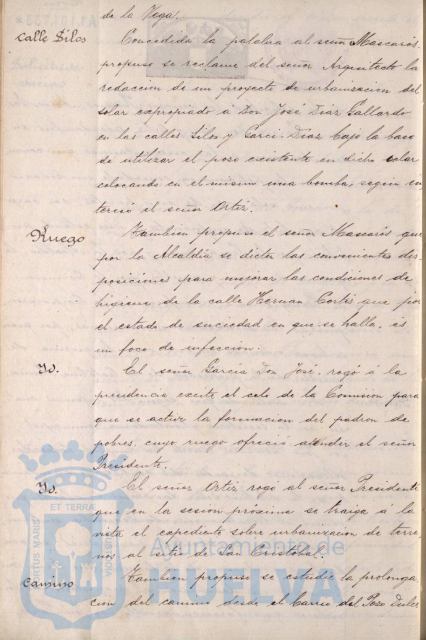 de la Vega.
Calle Silos Concedida la palabra al señor Mascarós
propuso se reclame del señor Arquitecto la
redacción de un proyecto de urbanización del
solar expropiado á Don José Díaz Gallardo
en las calles Silos y Garci-Díaz bajo la base
de utilizar el pozo existente en dicho solar
colocando en el mismo una bomba, según in
teresó el señor Ortiz.
Ruego También propuso el señor Mascarós que
por la Alcaldía se dicten las convenientes dis
posiciones para mejorar las condiciones de
higiene de la calle Hernan Cortés que por
el estado de suciedad en que se halla, es
un foco de infección.
Yd. El señor García Don José, rogó á la
presidencia excite el celo de la Comisión para
que se active la formación del padron de
pobres, cuyo ruego ofreció atender el señor
Presidente.
Yd. El señor Ortiz rogó al señor Presidente
que en la sesión próxima se traiga á la
vista el expediente sobre urbanización de terre
nos al sitio de San Cristobal.
Camino También propuso se estudie la prolonga
cion del camino desde el barrio del Pozo Dulce
PORTUS MARIS ET TERRAE CUSTODIA
Ayuntamiento de
HUELVA